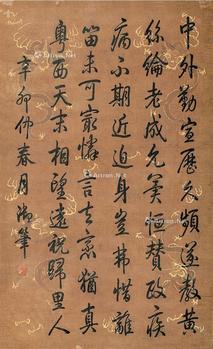 中外勤宣歷久頻遂教黃
絲綸老成允冀恒贊政疾
病不期近迫身豈弗惜離
留未可最憐言去意猶真
粵西天末相望遠祝歸里人
辛卯仲春月御筆